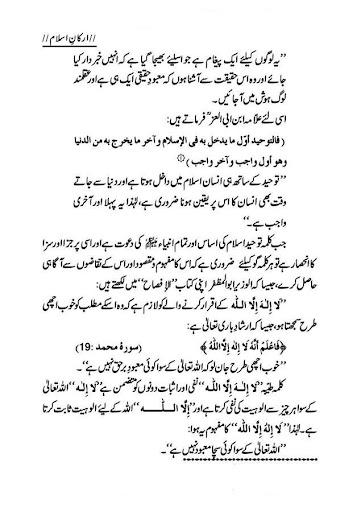 // ارکانِ اسلام //
”یہ لوگوں کیلئے ایک پیغام ہے جو اسلئے بھیجا گیا ہے کہ انہیں خبردار کیا
جائے اور وہ اس حقیقت سے آشنا ہوں کہ معبودِ حقیقی ایک ہی ہے اور عقلمند
لوگ ہوش میں آجائیں۔
اسی لئے علامہ ابن ابی العزؒ فرماتے ہیں:
(فالتوحيد أوّل ما يدخل به فى الإسلام و آخر ما يخرج به من الدنيا
وهو أول واجب و آخر واجب)
”توحید کے ساتھ ہی انسان اسلام میں داخل ہوتا ہے اور دنیا سے جاتے
وقت بھی انسان کا اس پر یقین ہونا ضروری ہے، لہٰذا یہ پہلا اور آخری
واجب ہے۔“
جب کلمہ توحید اسلام کی اساس اور تمام انبیاء ﷺ کی دعوت ہے اور اسی پر جزا اور سزا
کا انحصار ہے تو ہر کلمہ گو کیلئے ضروری ہے کہ اس کا مفہوم و مقصود اور اس کے تقاضوں سے آگاہی
حاصل کرے، جیسا کہ الوزیر ابو المظفر اپنی کتاب ”الإفصاح“ میں لکھتے ہیں:
”لَا إِلٰهَ إِلَّا اللّٰه کے اقرار کرنے والے کو لازم ہے کہ وہ اسکے مطلب کو خوب اچھی
طرح سمجھتا ہو، جیسا کہ ارشادِ باری تعالیٰ ہے:
﴿فَاعْلَمْ أَنَّهُ لَا إِلٰهَ إِلَّا اللّٰهُ﴾ (سورۃ محمد :19)
”خوب اچھی طرح جان لو کہ اللہ تعالیٰ کے سوا کوئی معبودِ برحق نہیں ہے“۔
کلمہ طیبہ ”لَا إِلٰهَ إِلَّا اللّٰه“ نفی اور اثبات دونوں کو متضمن ہے ”لَا إِلٰهَ“ اللہ تعالیٰ
کے سوا ہر چیز سے الوہیت کی نفی کرتا ہے اور ”إِلَّا اللّٰه“ اللہ کے لیئے الوہیت ثابت کرتا
ہے۔ لہٰذا ”لَا إِلٰهَ إِلَّا اللّٰه“ کا مفہوم یہ ہوا:
”اللہ تعالیٰ کے سوا کوئی سچا معبود نہیں ہے“۔